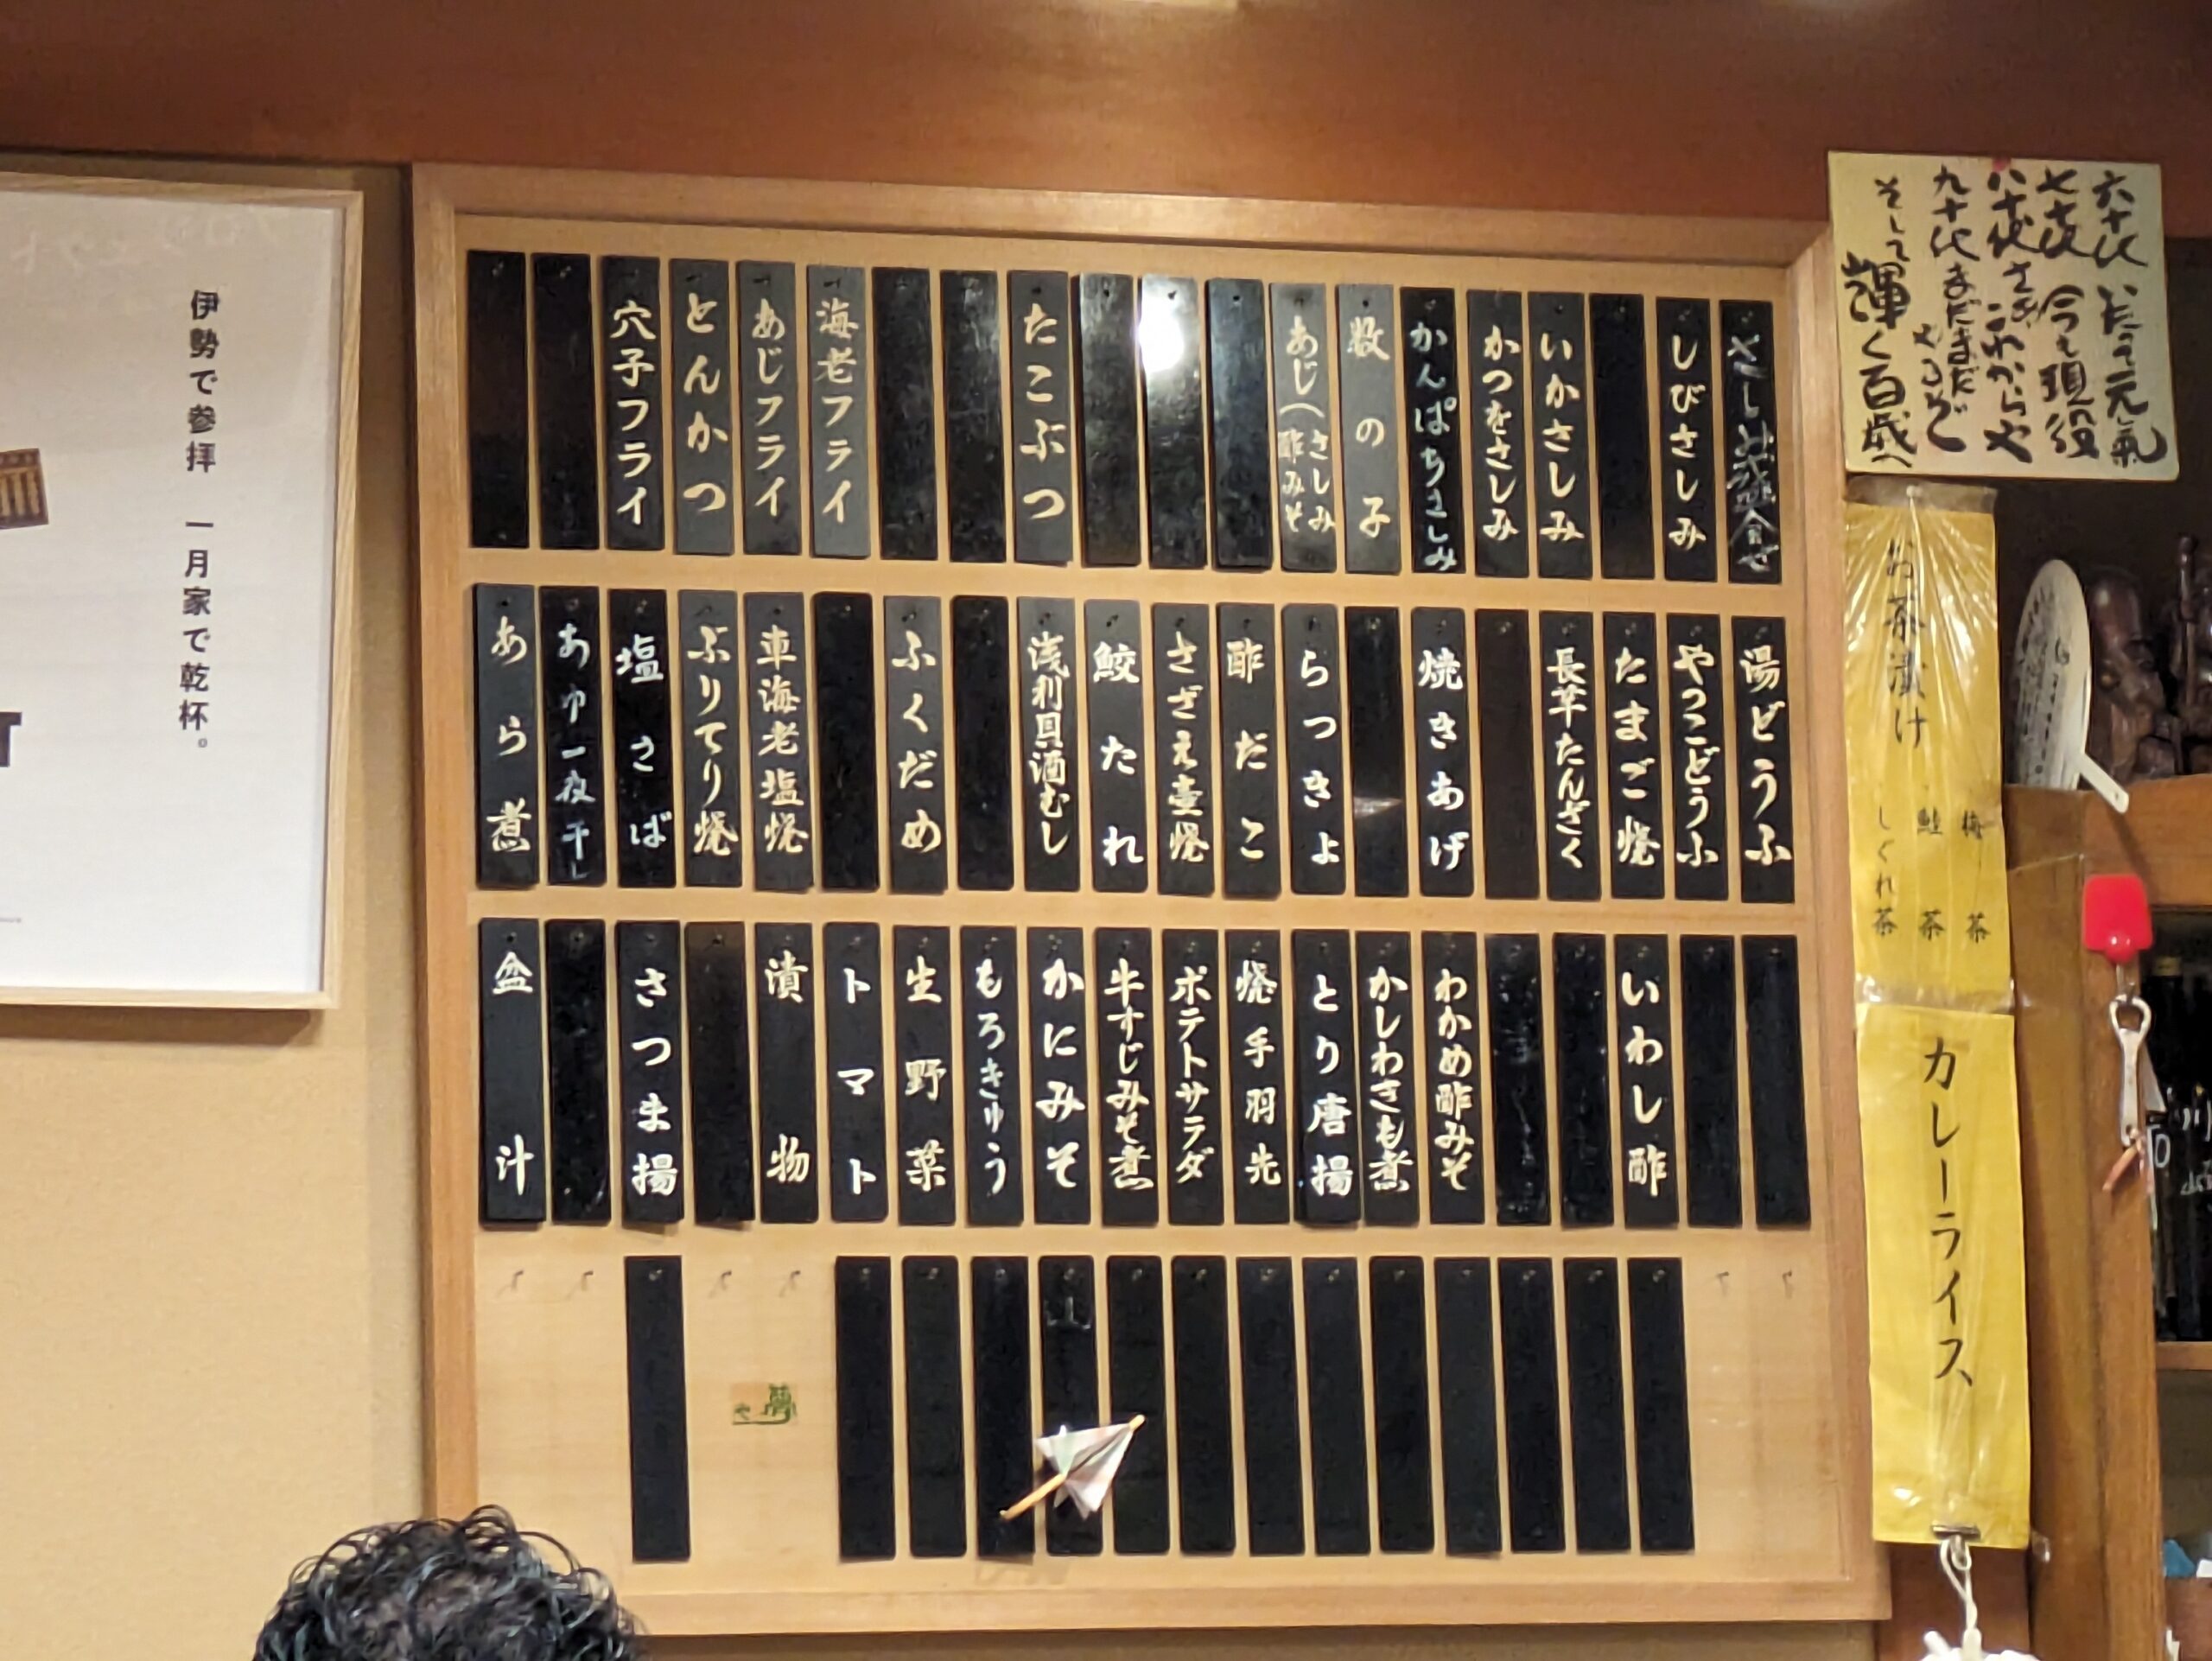 六十代 いたって元氣
七十代 今も現役
八十代 さぁこれからや
九十代 まだまだやるぞ
そして輝く百歳へ
さしみ盛合せ
しびさしみ
いかさしみ
かつをさしみ
かんぱちさしみ
数の子
あじ(さしみ
酢みそ
たこぶつ
海老フライ
あじフライ
とんかつ
穴子フライ
湯どうふ
やっこどうふ
たまご焼
長芋たんざく
焼きあげ
らっきょ
酢だこ
さざえ壷焼
鮫たれ
浅利貝酒むし
ふくだめ
車海老塩焼
ぶりてり焼
塩さば
あゆ一夜干し
あら煮
いわし酢
わかめ酢みそ
かしわきも煮
とり唐揚
焼手羽先
ポテトサラダ
牛すじみそ煮
かにみそ
もろきゅう
生野菜
トマト
漬物
さつま揚
盆汁
お茶漬け
梅茶
鮭茶
しぐれ茶
カレーライス
伊勢で参拝 一月家で乾杯。